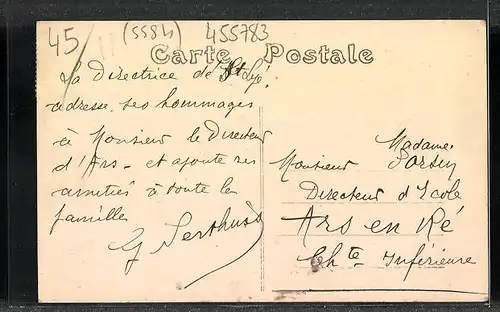 45
(5584)
455783
Carte Postale
La Directrice de St
adresse ses hommages
à Monsieur le Directeur
d'Ars - et ajoute ses
amitiés à toute la
famille
Madame
Monsieur
Directeur d'Ecole
Ars en Ré
Chte Inférieure